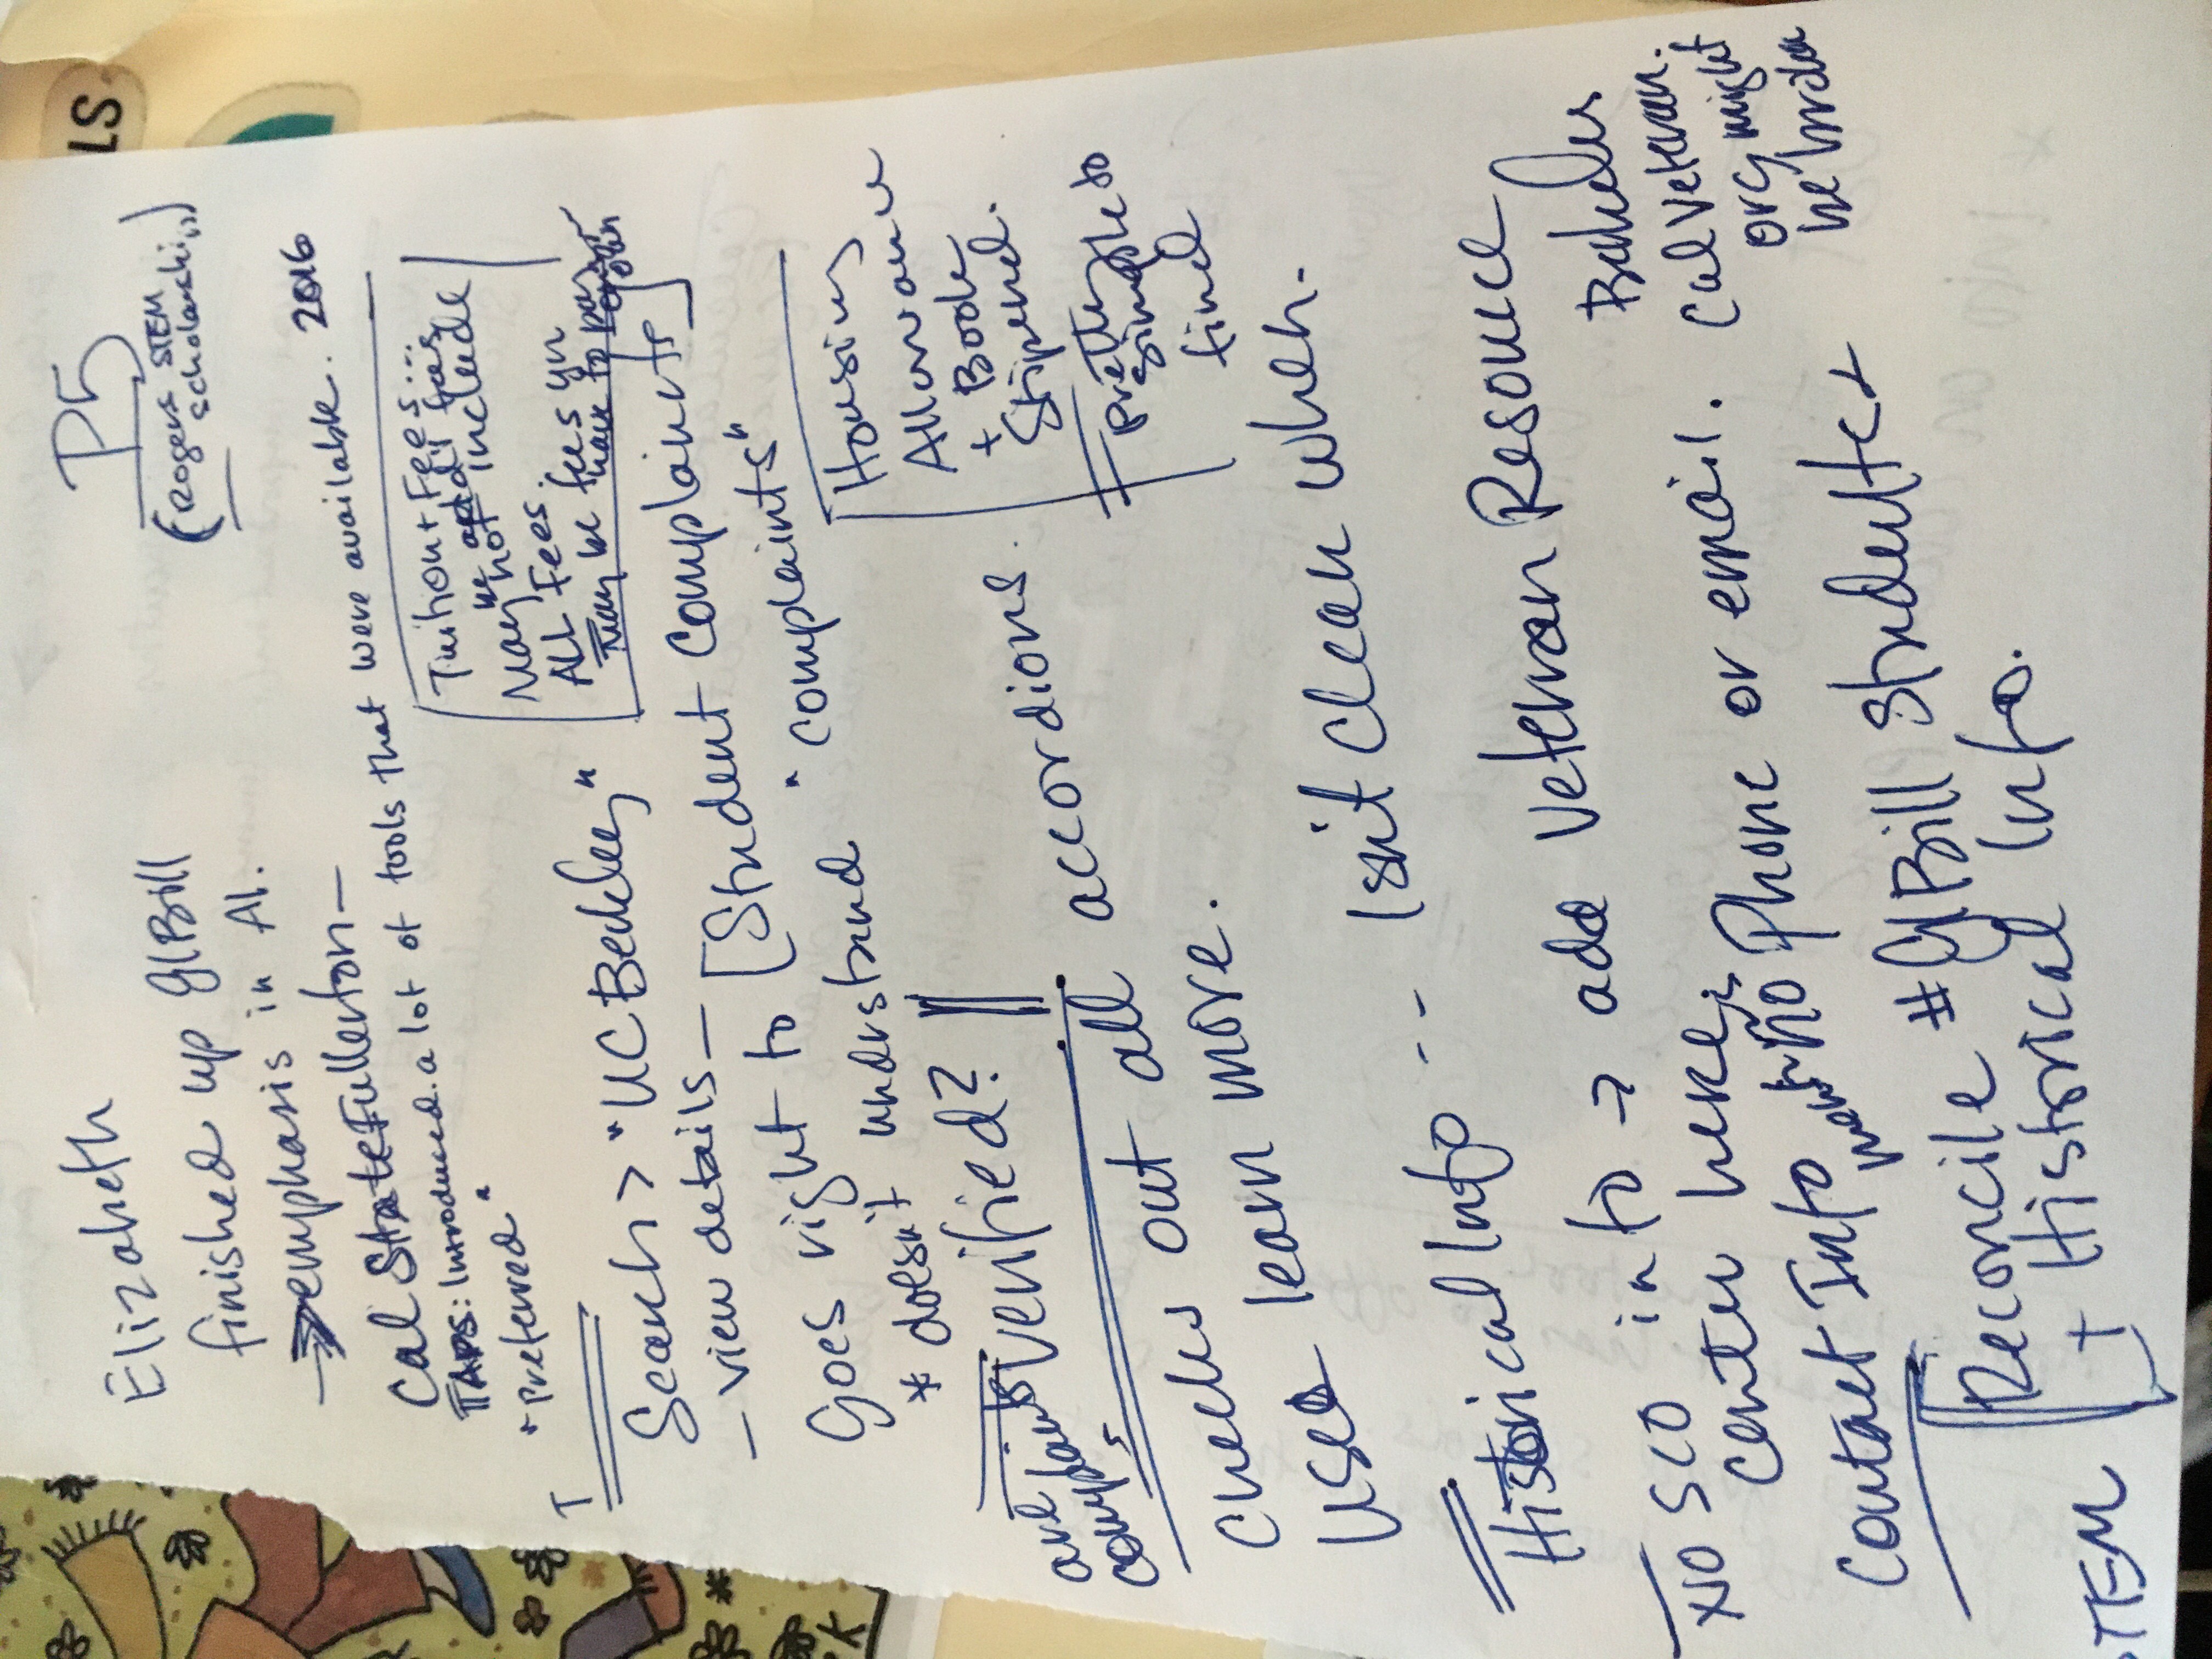 Elizabeth
P5
(Rogers STEM
scholarship)
finished up GI Bill
→ emphasis in AI.
Cal State Fullerton —
TAPS: Introduced a lot of tools that were available. 2016
"Preferred"
Tuition + Fees...
be add'l fees
May not include
ALL Fees.
May be fees yu
have to pay
on your own
T
Search > "UC Berkeley"
— view details —
Goes right to [Student Complaints]
* doesn't understand "complaints"
are
complaints verified?
Housing
Allowance
+ Book
Stipend.
Pretty
simple to
find
Checks out all accordions.
Used learn more.
Historical Info -- Isn't Clear when.
No SCO info → add Veteran Resource
Center here;
Contact Info no Phone or email.
Berkeley
Cal Veteran.
org might
be broken
Reconcile # GI Bill students
+ Historical Info.
STEM
LS